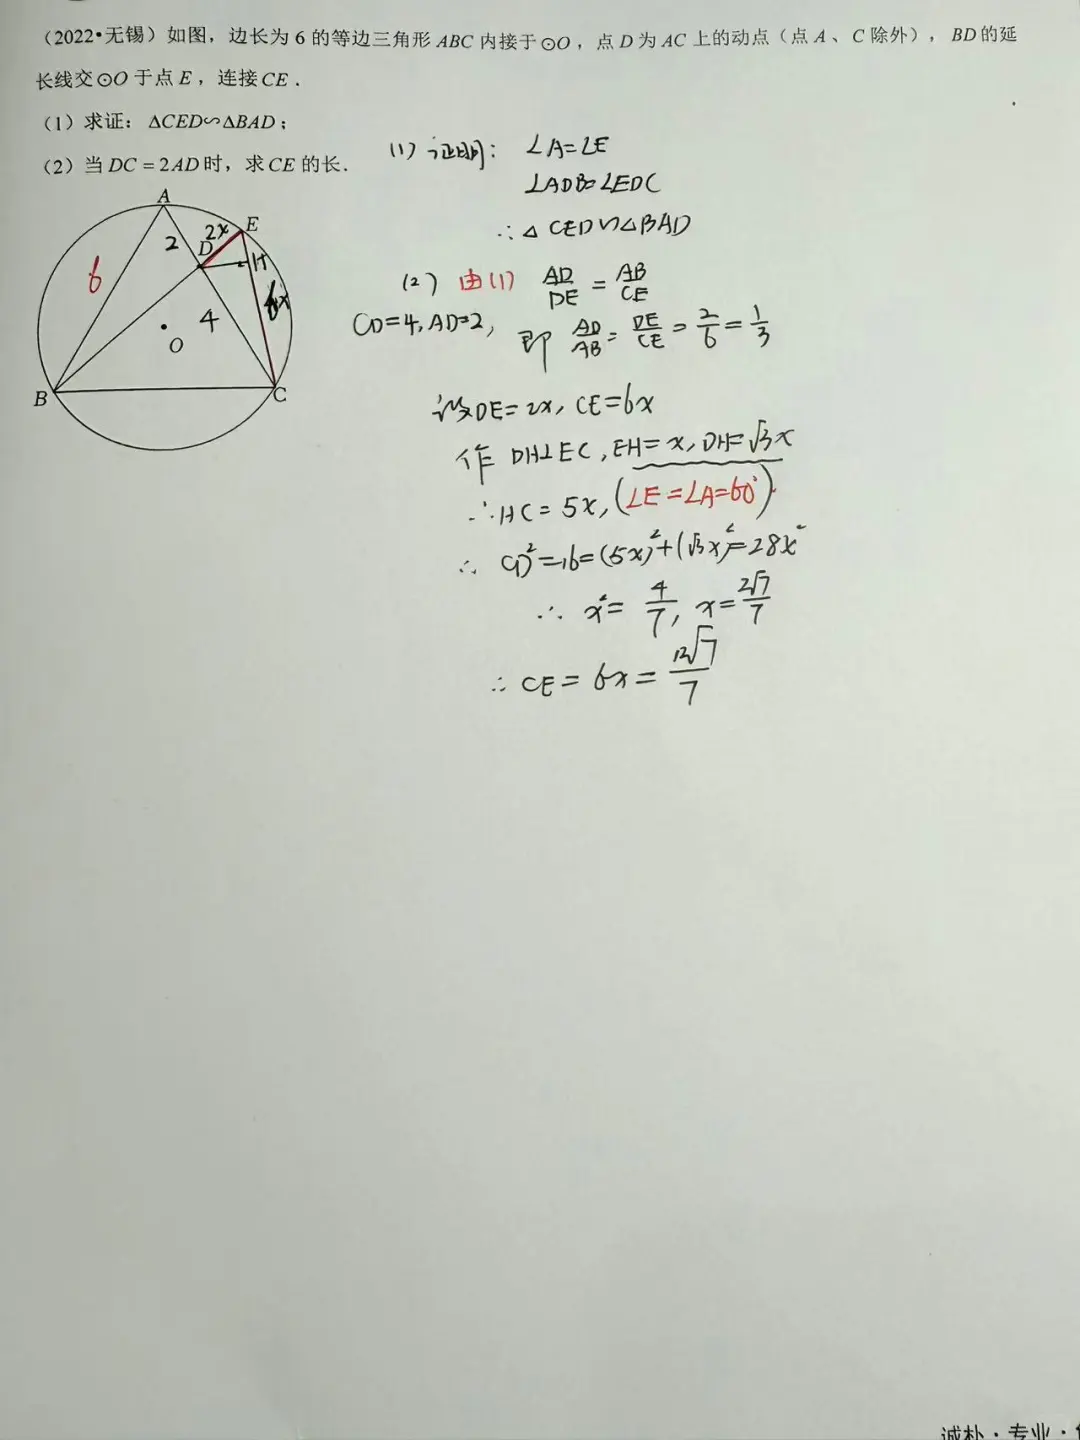 (2022•无锡) 如图，边长为 6 的等边三角形 ABC 内接于⊙O，点 D 为 AC 上的动点（点 A、C 除外），BD 的延
长线交⊙O 于点 E，连接 CE．
(1) 求证：△CED∽△BAD；
(2) 当 DC = 2AD 时，求 CE 的长．
A
E
2x
2
D
H
6
6x
4
O
B
C
(1) 证明： ∠A=∠E
∠ADB=∠EDC
∴△CED∽△BAD
(2) 由(1) AD/DE = AB/CE
CD=4, AD=2, 即 AD/AB = DE/CE = 2/6 = 1/3
设DE=2x, CE=6x
作 DH⊥EC, EH=x, DH=√3x
∴HC=5x, (∠E=∠A=60°)
∴ CD²=16=(5x)²+(√3x)²=28x²
∴ x²= 4/7, x= 2√7/7
∴ CE = 6x = 12√7/7
诚朴·专业·